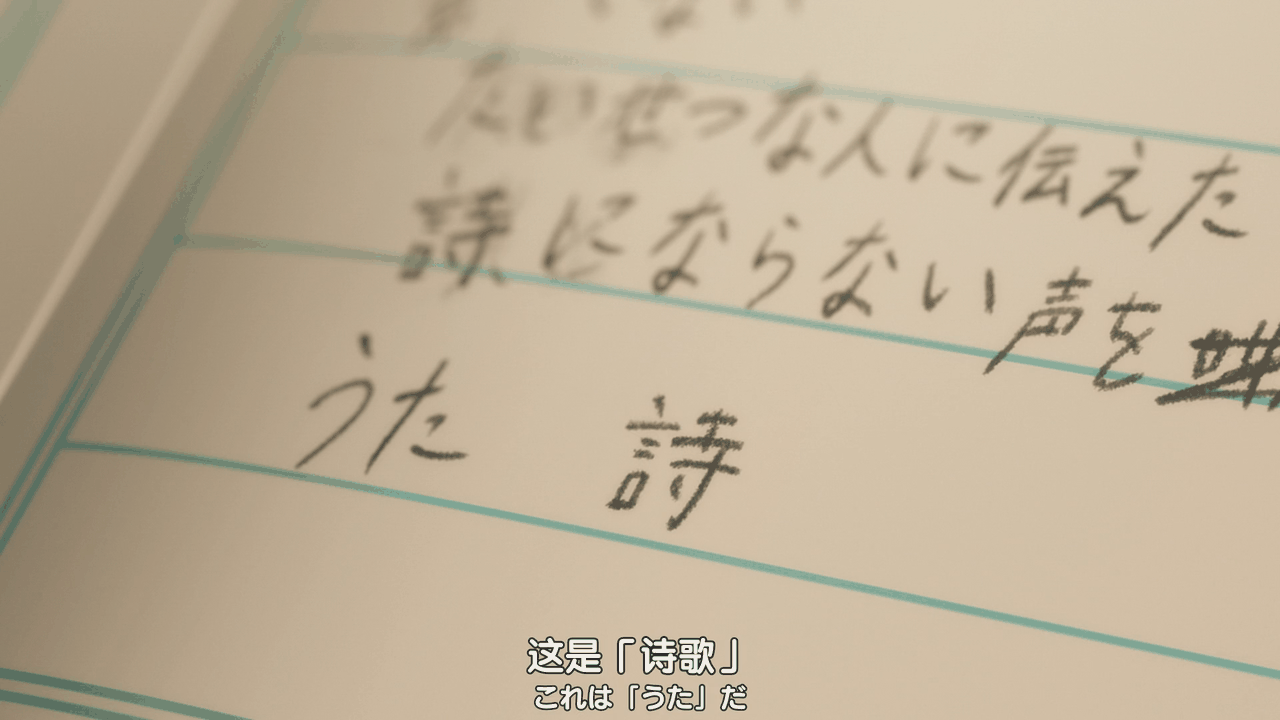 たいせつな人に伝えた
詩にならない声を
うた 詩
这是「诗歌」
これは「うた」だ